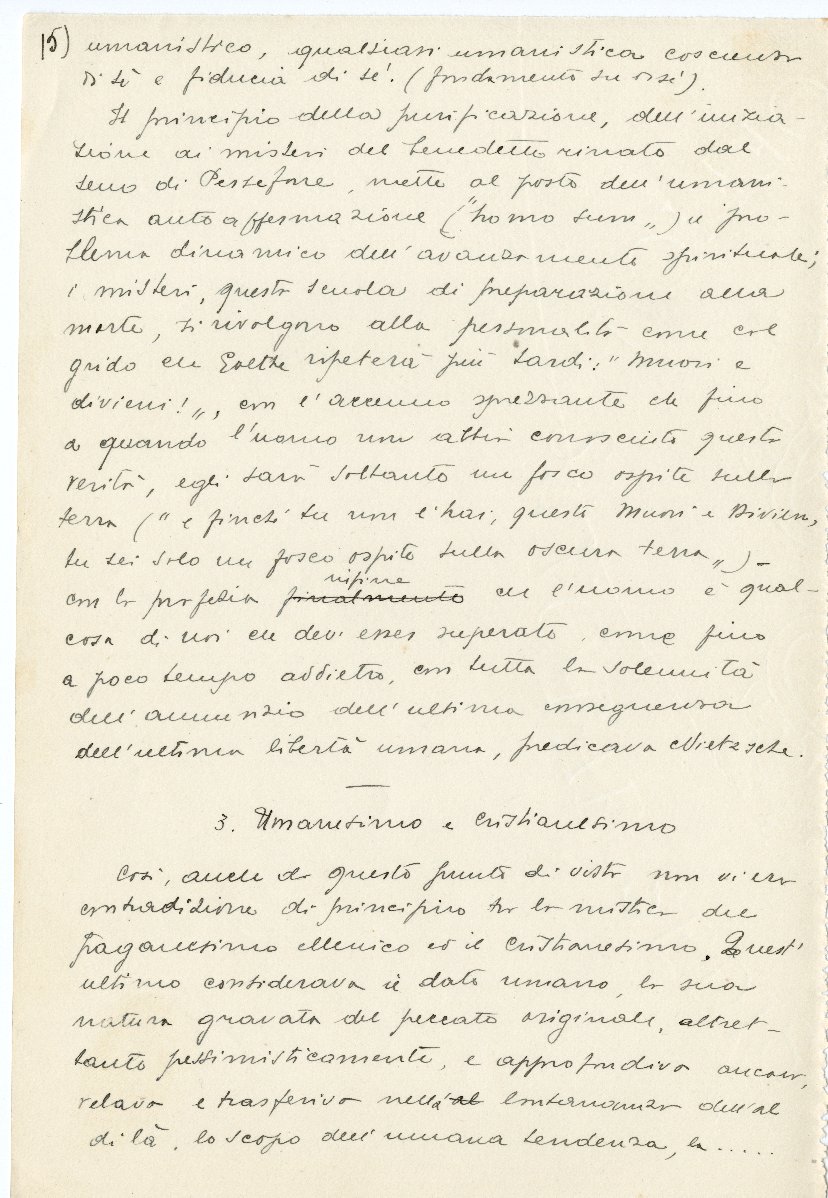 15) umanistico, qualsiasi umanistica coscienza
di sé e fiducia di sé. (fondamento su di sé).
Il principio della purificazione, dell'inizia-
zione ai misteri del benedetto rinato dal
seno di Persefone, mette al posto dell'umani-
stica autoaffermazione ("homo sum„) il pro-
blema dinamico dell'avanzamento spirituale;
i misteri, questa scuola di preparazione alla
morte, si rivolgono alla personalità come col
grido che Goethe ripeterà più tardi: "Muori e
divieni!„, con l'accenno sprezzante che fino
a quando l'uomo non abbia conosciuto questa
verità, egli sarà soltanto un fosco ospite sulla
terra ("e finché tu non l'hai, questo Muori e Divieni,
tu sei solo un fosco ospite sulla oscura terra„) –
con la profezia finalmente infine che l'uomo è qual-
cosa di noi che deve esser superato, come fino
a poco tempo addietro, con tutta la solennità
dell'annunzio dell'ultima conseguenza
dell'ultima libertà umana, predicava Nietzsche.
3. Umanesimo e cristianesimo
Così, anche da questo punto di vista non vi era
contradizione di principio tra la mistica del
paganesimo ellenico ed il cristianesimo. Quest'
ultimo considerava il dato umano, la sua
natura gravata del peccato originale, altret-
tanto pessimisticamente, e approfondiva ancor,
velava e trasferiva nella lontananza dell'al
di là, lo scopo dell'umana tendenza, la .....